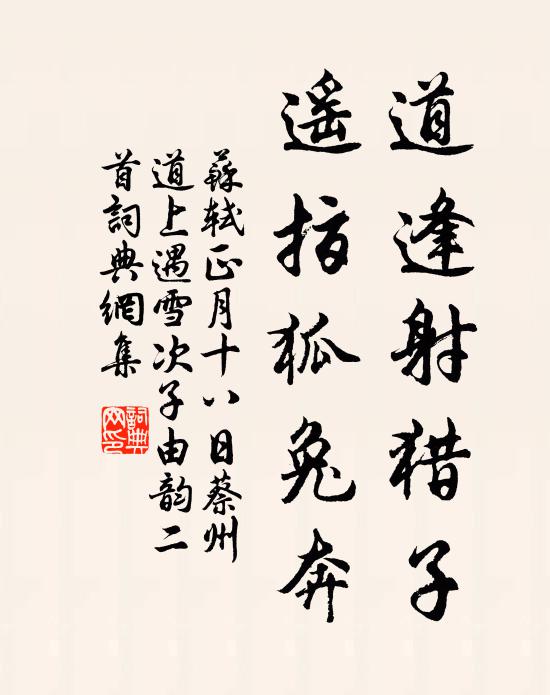 道逢射猎子
遥指狐兔奔
蘇轼正月十八日蔡州
道上遇雪次子由韵二
首詞典網集
詞典
网印